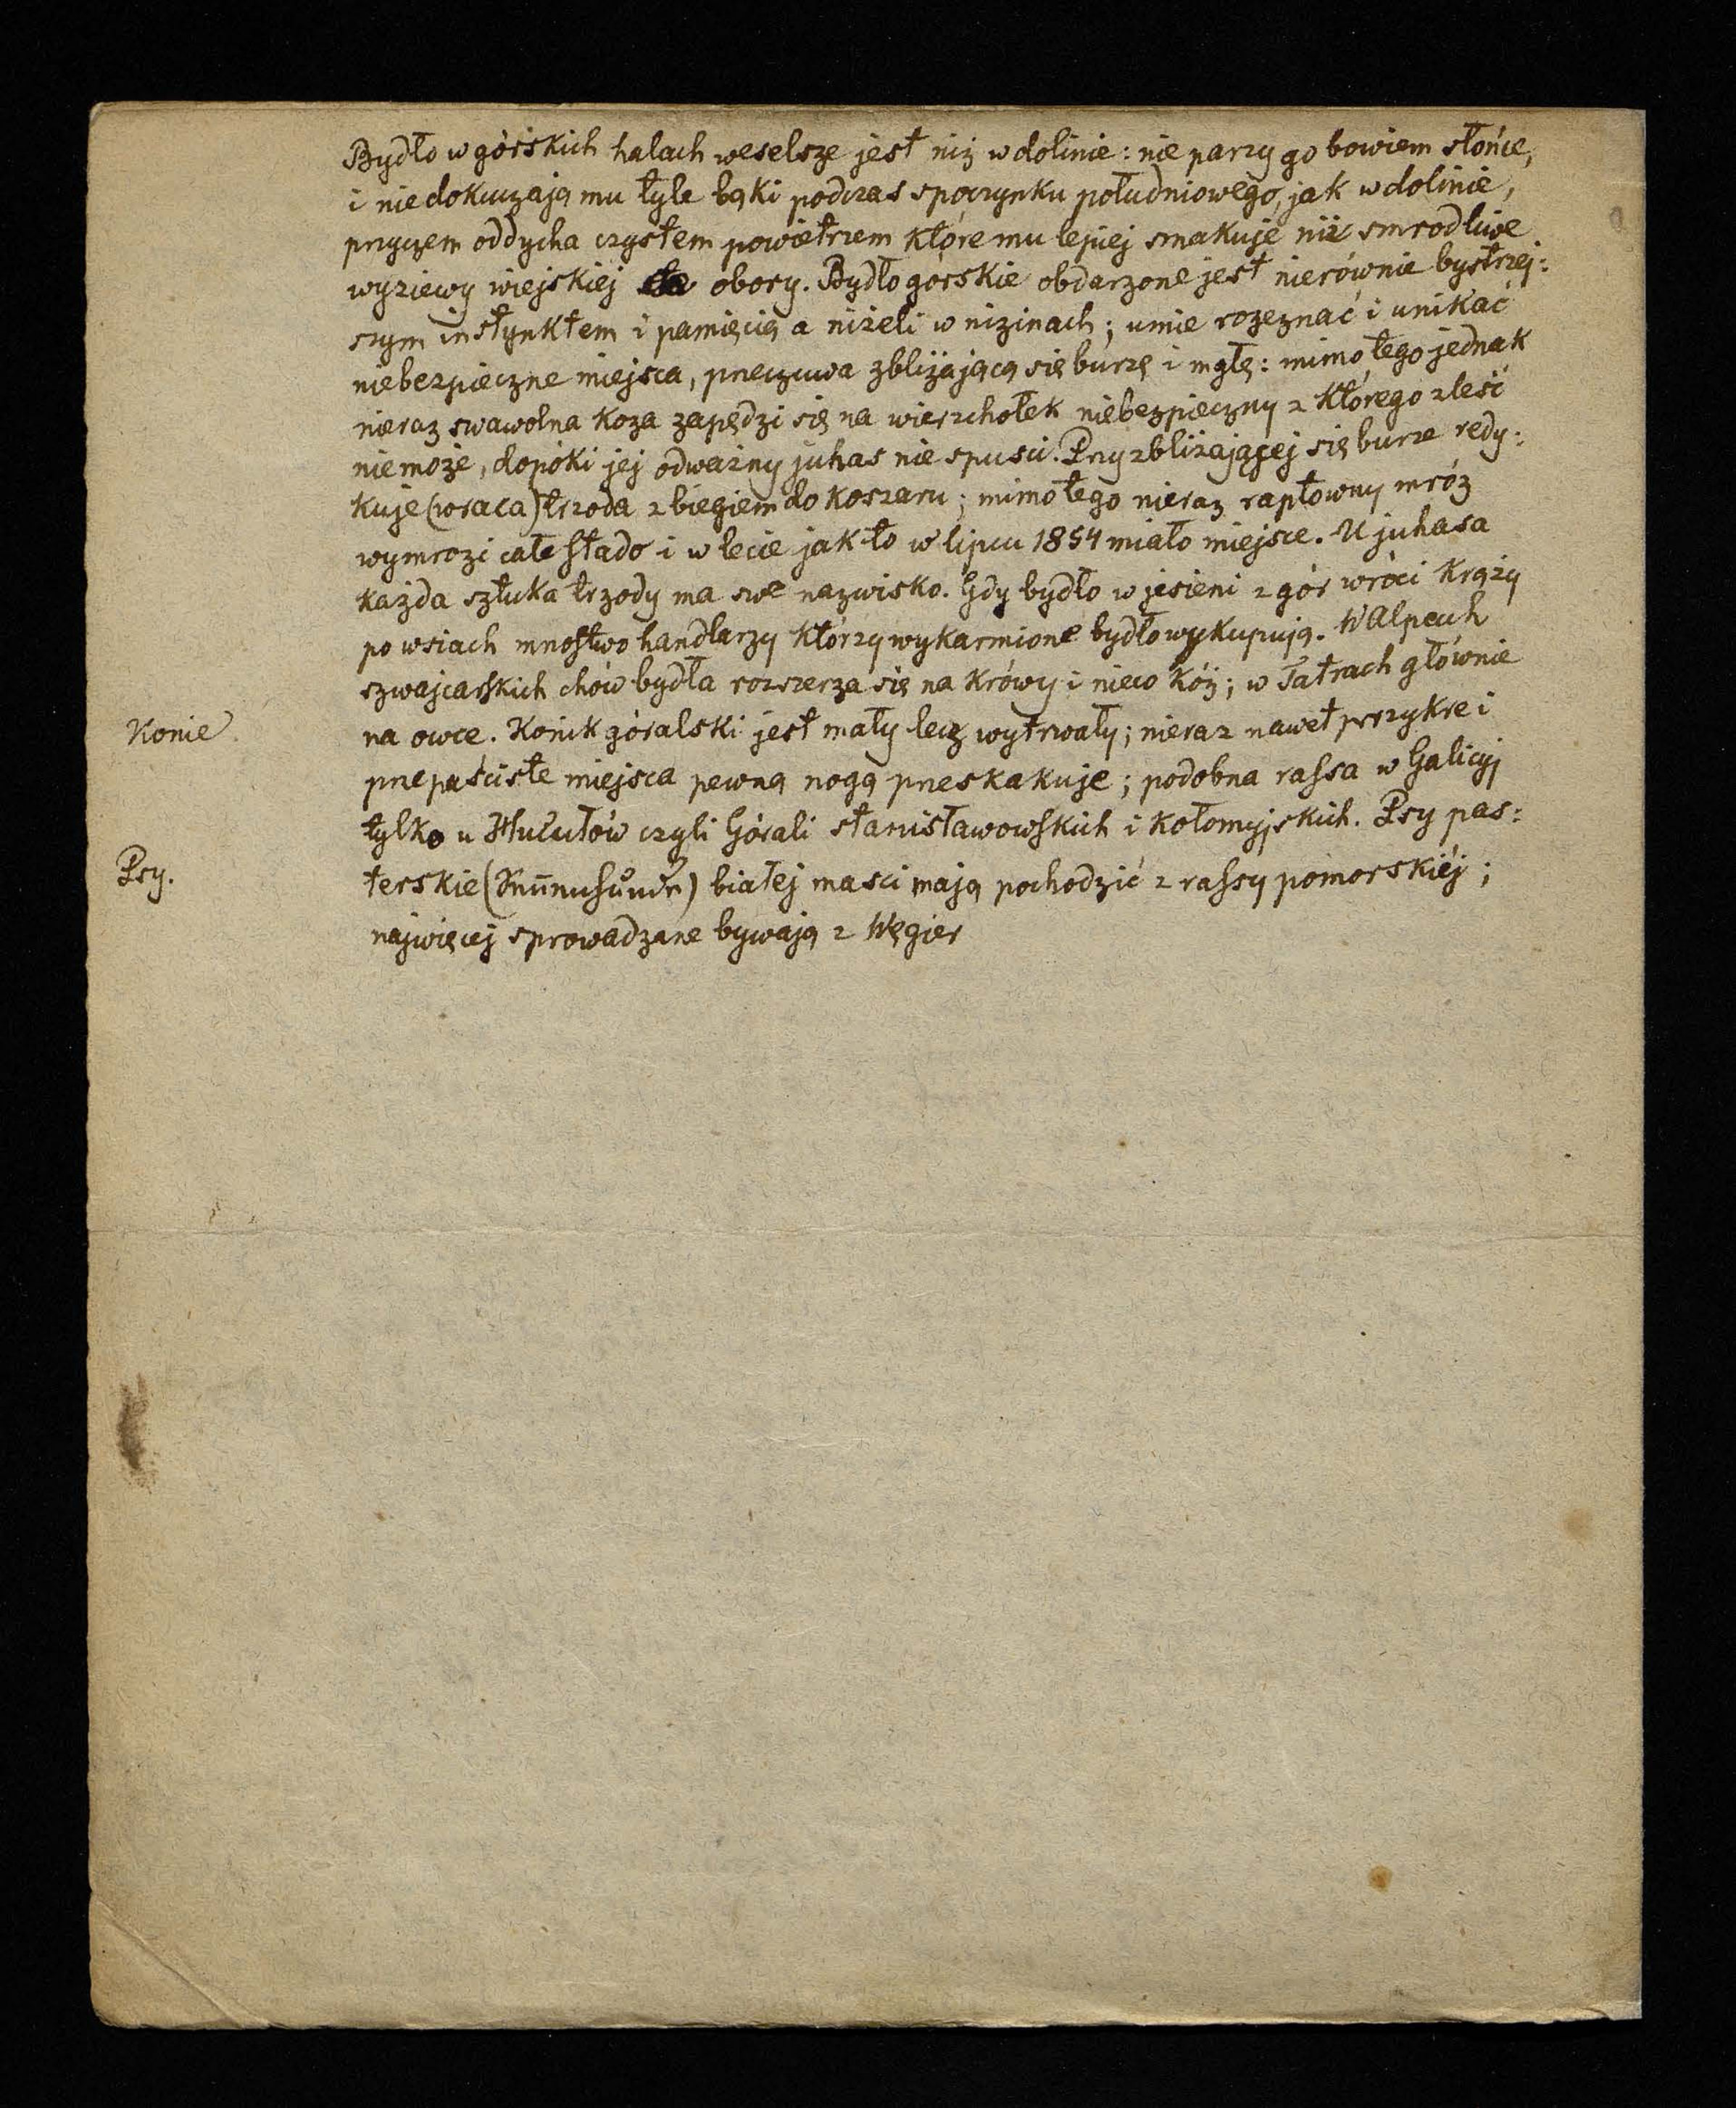 Bydło w górskich halach weselsze jest niż w dolinie: nie parzy go bowiem słońce,
i nie dokuczają mu tyle bąki podczas spoczynku południowego, jak w dolinie,
przyczem oddycha czystem powietrzem które mu lepiej smakuje niż smrodliwe
wyziewy wiejskiej obory. Bydło górskie obdarzone jest nierównie bystrzej:
szym instynktem i pamięcią a niżeli w nizinach; umie rozeznać i unikać
niebezpieczne miejsca, przeczuwa zbliżającą się burzę i mgłę: mimo tego jednak
nieraz swawolna koza zapędzi się na wierzchołek niebezpieczny z którego zleść
niemoże, dopóki jej odważny juhas nie spuści. Przy zbliżającej się burze redy:
kuje (wraca) trzoda z biegiem do koszaru; mimo tego nieraz raptowny mróz
wymrozi całe stado i w lecie jak to w lipcu 1854 miało miejsce. U juhasa
każda sztuka trzody ma swe nazwisko. Gdy bydło w jesieni z gór wróci krążą
po wsiach mnóstwo handlarzy którzy wykarmione bydło wykupują. W Alpach
szwajcarskich chów bydła rozszerza się na krówy i nieco kóz; w Tatrach głównie
Konie na owce. Konik góralski jest mały lecz wytrwały; nieraz nawet przykre i
przepaściste miejsca pewną nogą przeskakuje; podobna rassa w Galicyj
tylko u Hucułów czyli Górali stanisławowskich i kołomyjskich. Psy pas:
Psy. terskie () białej masci mają pochodzić z rassy pomorskiéj;
najwięcej sprowadzane bywają z Węgier